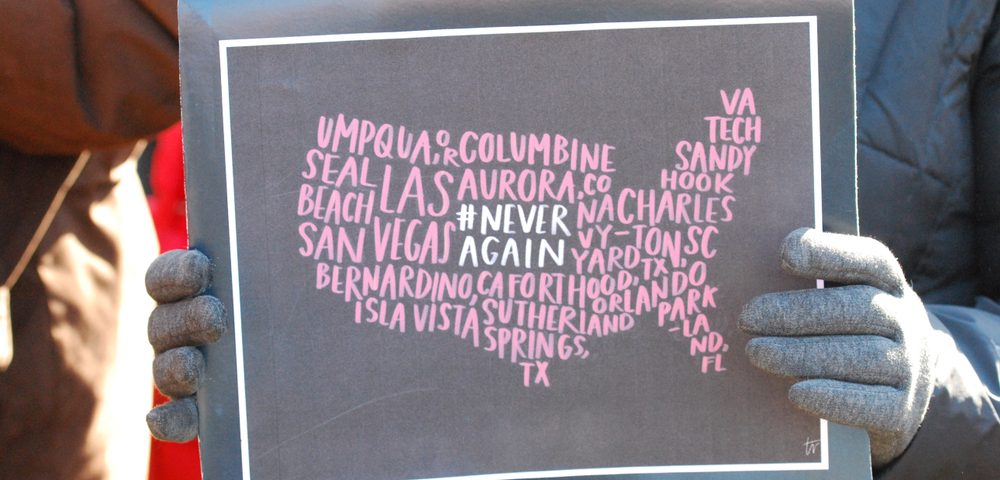 VA
TECH
UMPQUA, OR COLUMBINE SANDY
SEAL LAS AURORA, CO HOOK
BEACH VEGAS #NEVER NA CHARLES
SAN AGAIN VY- TON, SC
YARD
BERNARDINO, CA FORT HOOD, TX ORLANDO
ISLA VISTA SUTHERLAND PARK
SPRINGS, -LA
TX ND,
FL